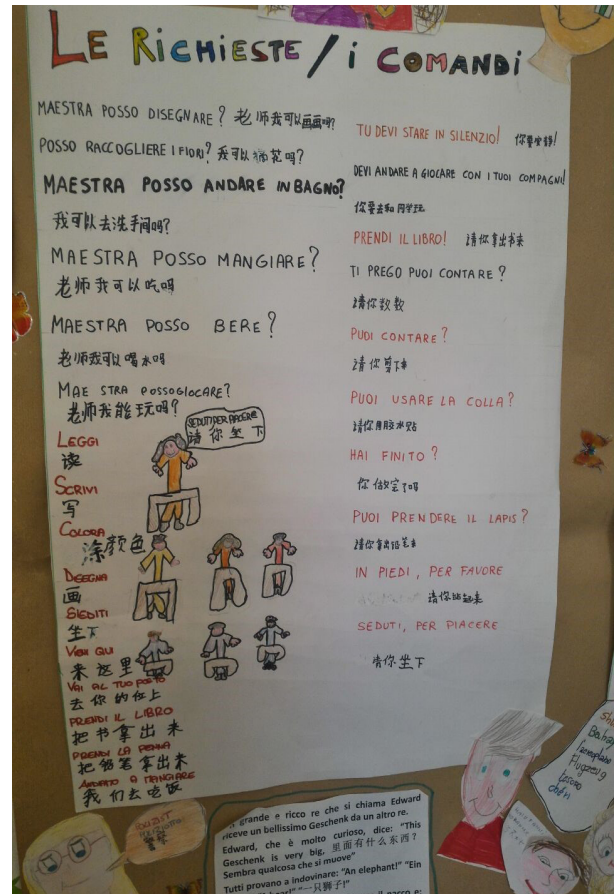 LE RICHIESTE / i COMANDI
MAESTRA POSSO DISEGNARE? 老师我可以画画吗?
POSSO RACCOGLIERE I FIORI? 我可以摘花吗?
MAESTRA POSSO ANDARE IN BAGNO?
我可以去洗手间吗?
MAESTRA POSSO MANGIARE?
老师我可以吃吗
MAESTRA POSSO BERE?
老师我可以喝水吗
MAESTRA POSSO GIOCARE?
老师我能玩吗?
LEGGI
读
SCRIVI
写
COLORA
涂颜色
DISEGNA
画
SIEDITI
坐下
VIENI QUI
来这里
VAI AL TUO POSTO
去你的位上
PRENDI IL LIBRO
把书拿出来
PRENDI LA PENNA
把铅笔拿出来
ANDIAMO A MANGIARE
我们去吃饭
SEDUTI PER PIACERE
请你坐下
TU DEVI STARE IN SILENZIO! 你要安静!
DEVI ANDARE A GIOCARE CON I TUOI COMPAGNI!
你要去和同学玩
PRENDI IL LIBRO! 请你拿出书来
TI PREGO PUOI CONTARE?
请你数数
PUOI CONTARE?
请你剪下来
PUOI USARE LA COLLA?
请你用胶水贴
HAI FINITO?
你做完了吗
PUOI PRENDERE IL LAPIS?
请你拿出铅笔来
IN PIEDI, PER FAVORE
请你站起来
SEDUTI, PER PIACERE
请你坐下
grande e ricco re che si chiama Edward
riceve un bellissimo Geschenk da un altro re.
Edward, che è molto curioso, dice: "This
Geschenk is very big, 里面有什么东西?
Sembra qualcosa che si muove"
Tutti provano a indovinare: "An elephant!" "Ein
"一只狮子!"
Flugzeug